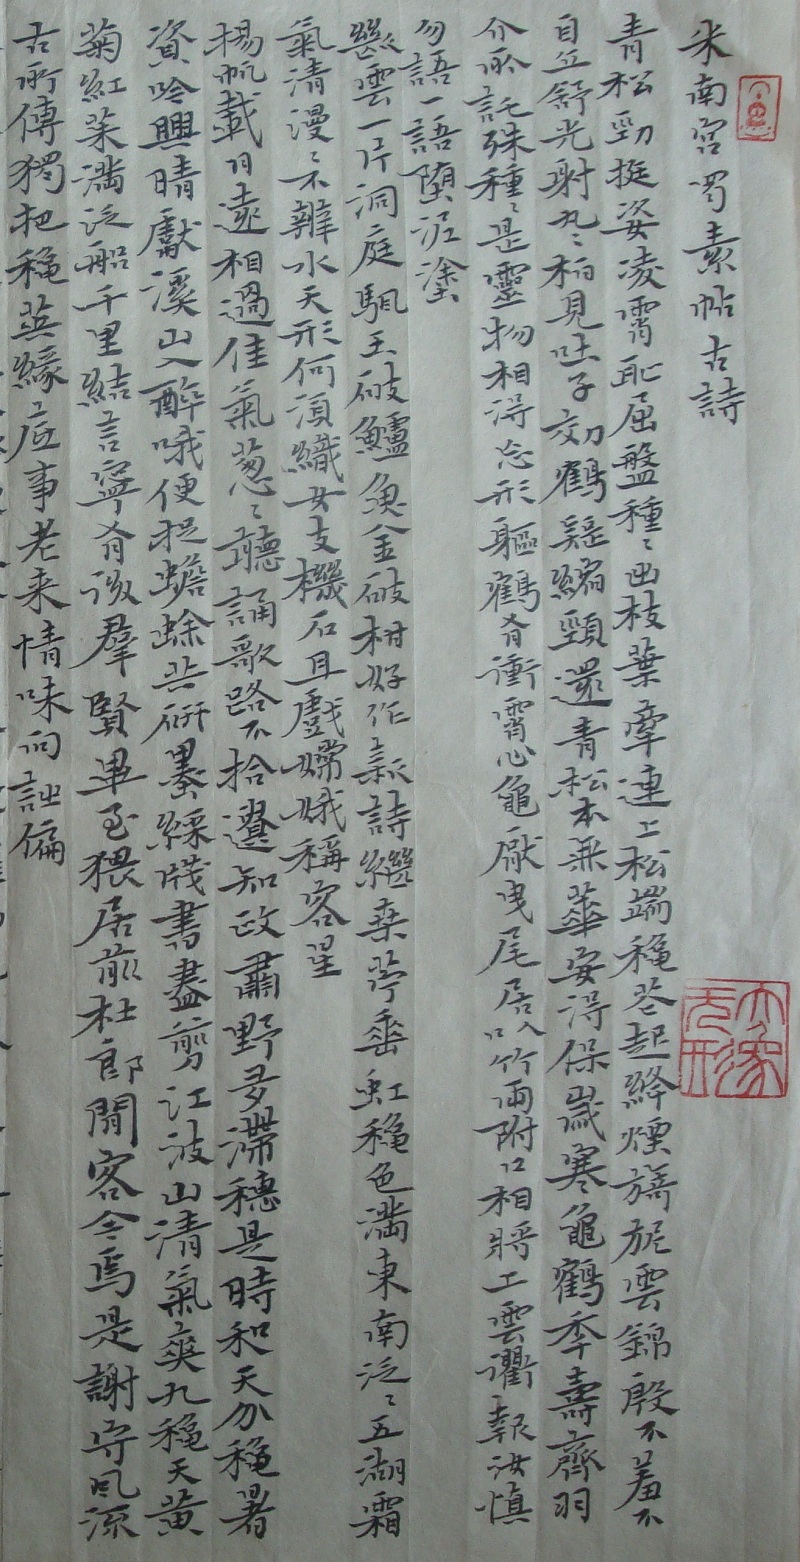 米南宮蜀素帖古詩
青松勁挺姿凌霄恥屈盤種〻出枝葉牽連上松端穐花起絳煙旖旎雲錦殷不羞不
自立舒光射丸〻栢見吐子効鶴疑縮頸還青松本無華安得保歲寒龜鶴年壽齊羽
介所託殊種〻是靈物相得忘形軀鶴有衝霄心龜厭曳尾居以竹兩附口相將上雲衢報汝慎
勿語一語墮泥塗
斷雲一片洞庭颿玉破鱸魚金破柑好作新詩繼桑苧垂虹穐色滿東南泛〻五湖霜
氣清漫〻不辨水天形何須織女支機石且戲嫦娥稱客星
楊帆載月遠相過佳氣葱〻聽誦歌路不拾遺知政肅野多滯穗是時和天分穐暑
資吟興晴獻溪山入醉哦便捉蟾蜍共研墨綵牋書盡剪江波山清氣爽九穐天黃
菊紅茱滿泛船千里結言寧有後羣賢畢至猥居前杜郎閒客今焉是謝守風流
古所傳獨把穐英緣底事老來情味向詩偏